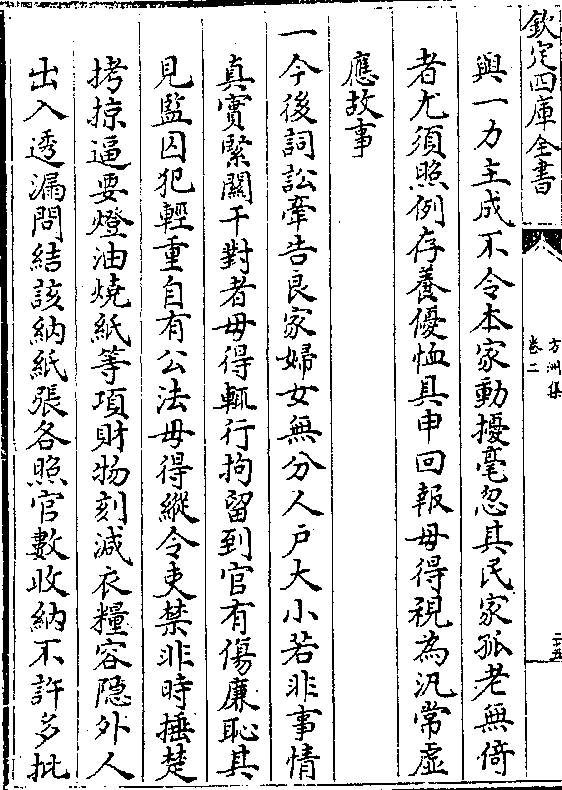 欽定四庫全書
方洲集
卷二
二五
與一力主成不令本家動擾毫忽其民家孤老無倚
者尤須照例存養優恤具申回報毋得視為汎常虛
應故事
一今後詞訟牽告良家婦女無分人戶大小若非事情
真實緊關干對者毋得輒行拘留到官有傷廉恥其
見監囚犯輕重自有公法毋得縱令吏禁非時捶楚
拷掠逼要燈油燒紙等項財物刻減衣糧容隱外人
出入透漏問結該納紙張各照官數收納不許多批